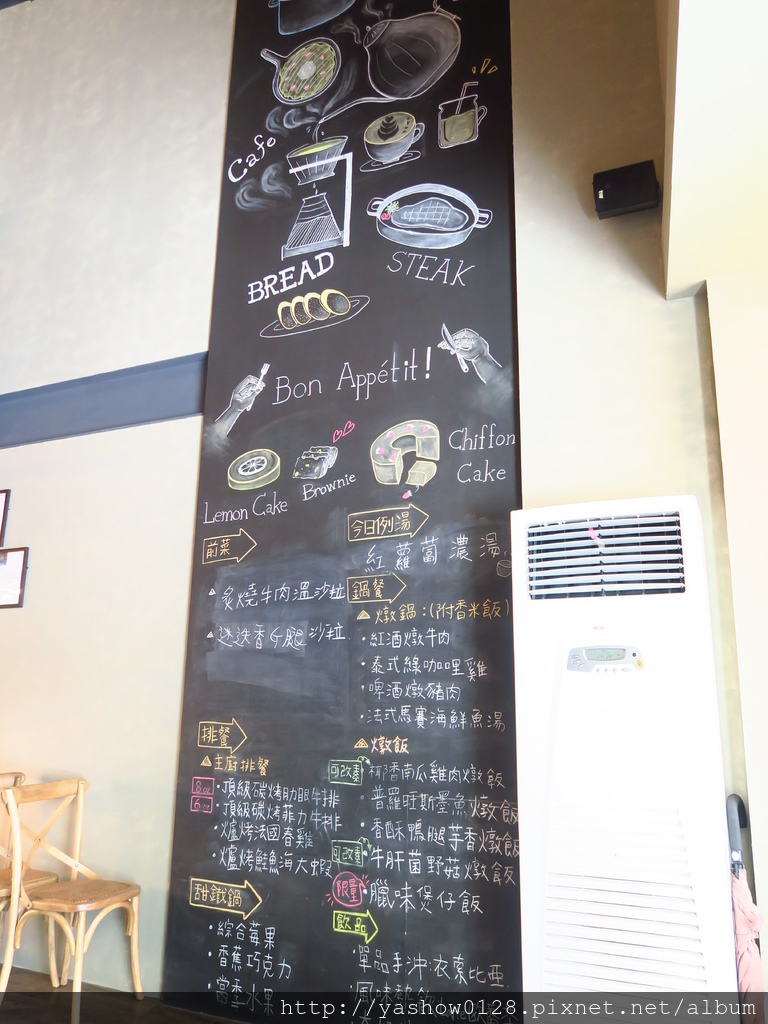 Cafe
BREAD
STEAK
Bon Appétit!
Lemon Cake
Brownie
Chiffon
Cake
前菜
炙燒牛肉溫沙拉
迷迭香仔腿沙拉
今日例湯
紅蘿蔔濃湯
鍋餐
燉鍋:(附香米飯)
·紅酒燉牛肉
·泰式綠咖哩雞
·啤酒燉豬肉
·法式馬賽海鮮魚湯
燉飯
可改素
椰香南瓜雞肉燉飯
·普羅旺斯墨魚燉飯
·香酥鴨腿芋香燉飯
可改素
·牛肝菌野菇燉飯
限量
臘味煲仔飯
排餐
主廚排餐
8oz
·頂級碳烤肋眼牛排
6oz
·頂級碳烤菲力牛排
·火爐烤法國春雞
·火爐烤鮭魚海大蝦
甜鐵鍋
·綜合莓果
·香蕉巧克力
·當季水果
飲品
·單品手沖:衣索比亞
·風味熱飲
http://yashow0128.pixnet.net/album